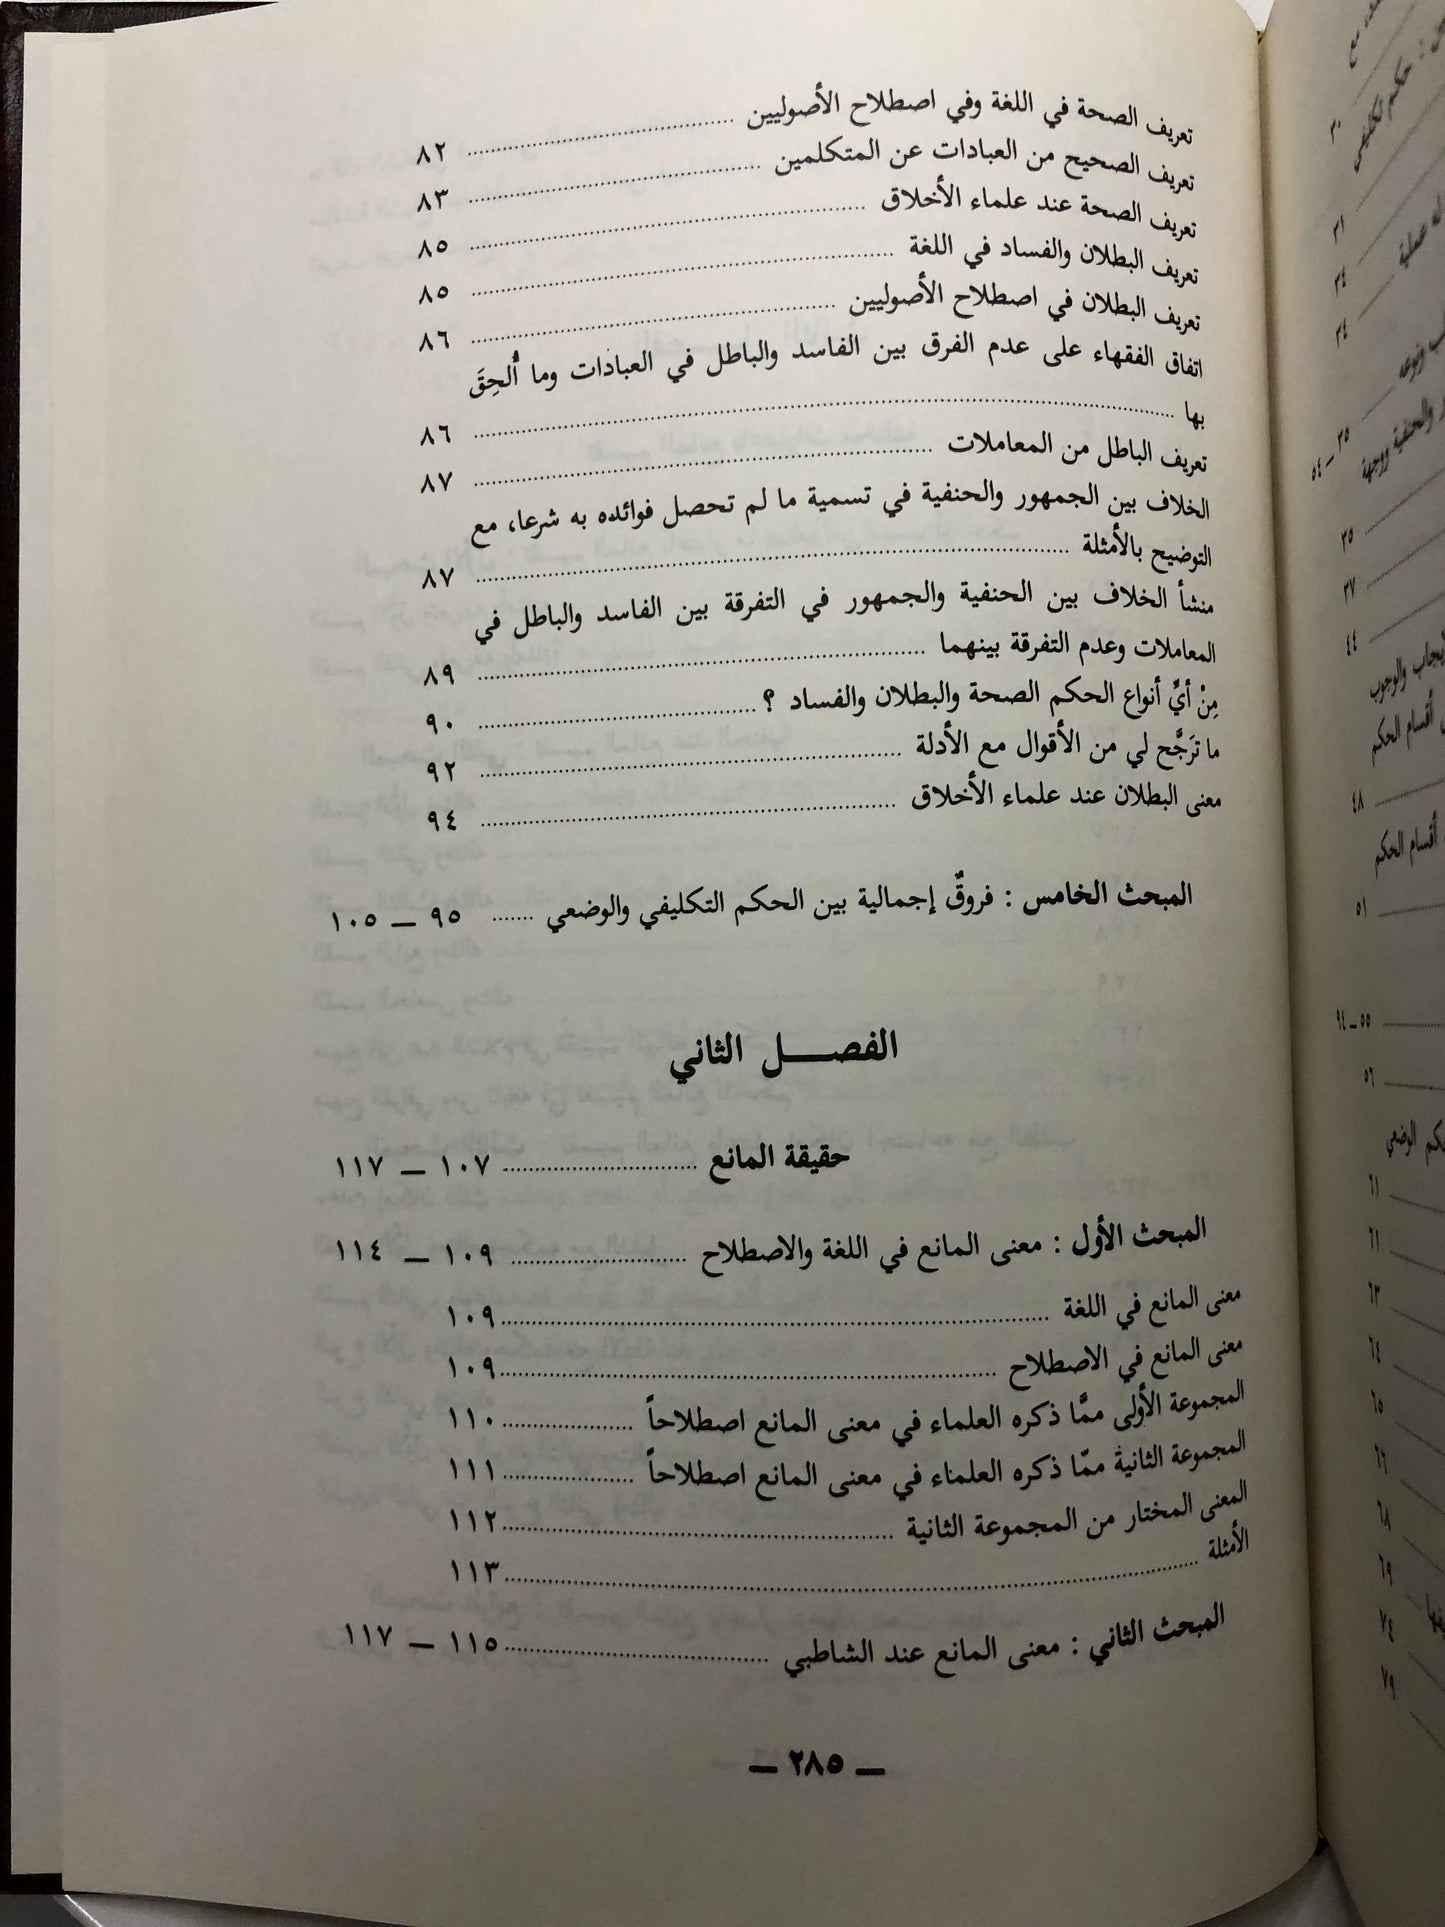 تعريف الصحة في اللغة وفي اصطلاح الأصوليين ........ ٨٢
تعريف الصحيح من العبادات عن المتكلمين ........ ٨٣
تعريف الصحة عند علماء الأخلاق ........ ٨٥
تعريف البطلان والفساد في اللغة ........ ٨٥
تعريف البطلان في اصطلاح الأصوليين ........ ٨٦
اتفاق الفقهاء على عدم الفرق بين الفاسد والباطل في العبادات وما أُلحِقَ
بها ........ ٨٦
تعريف الباطل من المعاملات ........ ٨٧
الخلاف بين الجمهور والحنفية في تسمية ما لم تحصل فوائده به شرعا، مع
التوضيح بالأمثلة ........ ٨٧
منشأ الخلاف بين الحنفية والجمهور في التفرقة بين الفاسد والباطل في
المعاملات وعدم التفرقة بينهما ........ ٨٩
مِنْ أيِّ أنواع الحكم الصحة والبطلان والفساد ؟ ........ ٩٠
ما تَرَجَّح لي من الأقوال مع الأدلة ........ ٩٢
معنى البطلان عند علماء الأخلاق ........ ٩٤
المبحث الخامس : فروقٌ إجمالية بين الحكم التكليفي والوضعي ....... ٩٥ ــ ١٠٥
الفصـــل الثاني
حقيقة المانع ........ ١٠٧ ــ ١١٧
المبحث الأول : معنى المانع في اللغة والاصطلاح ........ ١٠٩ ــ ١١٤
معنى المانع في اللغة ........ ١٠٩
معنى المانع في الاصطلاح ........ ١٠٩
المجموعة الأولى ممَّا ذكره العلماء في معنى المانع اصطلاحاً ........ ١١٠
المجموعة الثانية ممّا ذكره العلماء في معنى المانع اصطلاحاً ........ ١١١
المعنى المختار من المجموعة الثانية ........ ١١٢
الأمثلة ........ ١١٣
المبحث الثاني : معنى المانع عند الشاطبي ........ ١١٥ ــ ١١٧
ــ ٢٨٥ ــ
حكم تكليفي
٣٠
٣١
عملية
٣٤
٣٤
ونوعه
٣٥ ــ ٥٤
والحنفية ووجهة
٣٥
٣٧
٤٤
والوجوب
أقسام الحكم
٤٨
أقسام الحكم
٥١
٥٥ ــ ٩٤
٥٦
الوضعي
٦١
٦١
٦٣
٦٤
٦٥
٦٦
٦٨
٦٩
٧٤
٧٩